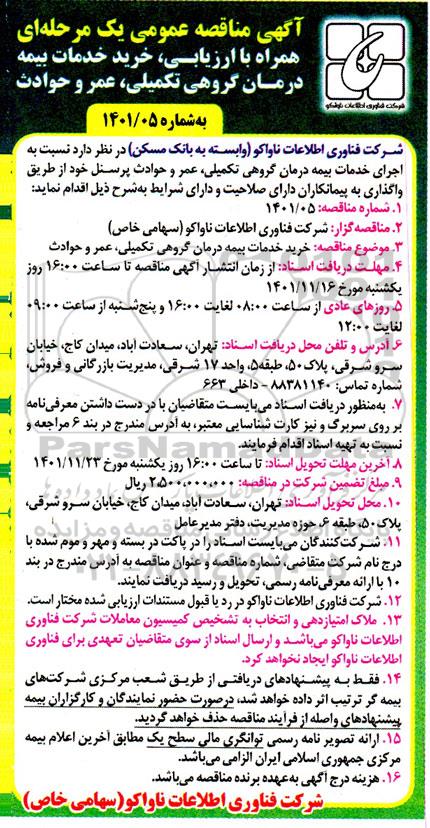 آگهی مناقصه عمومی یک مرحله‌ای
همراه با ارزیابی، خرید خدمات بیمه
درمان گروهی تکمیلی، عمر و حوادث
شرکت فناوری اطلاعات ناواکو
به‌شماره ۱۴۰۱/۰۵
شرکت فناوری اطلاعات ناواکو (وابسته به بانک مسکن) در نظر دارد نسبت به
اجرای خدمات بیمه درمان گروهی تکمیلی، عمر و حوادث پرسنل خود از طریق
واگذاری به پیمانکاران دارای صلاحیت و دارای شرایط به‌شرح ذیل اقدام نماید:
۱. شماره مناقصه: ۱۴۰۱/۰۵
۲. مناقصه‌گزار: شرکت فناوری اطلاعات ناواکو (سهامی خاص)
۳. موضوع مناقصه: خرید خدمات بیمه درمان گروهی تکمیلی، عمر و حوادث
۴. مهلت دریافت اسناد: از زمان انتشار آگهی مناقصه تا ساعت ۱۶:۰۰ روز
یکشنبه مورخ ۱۴۰۱/۱۱/۱۶
۵. روزهای عادی از ساعت ۰۸:۰۰ لغایت ۱۶:۰۰ و پنج‌شنبه از ساعت ۰۹:۰۰
لغایت ۱۲:۰۰
۶. آدرس و تلفن محل دریافت اسناد: تهران، سعادت آباد، میدان کاج، خیابان
سرو شرقی، پلاک ۵۰، طبقه ۵، واحد ۱۷ شرقی، مدیریت بازرگانی و فروش،
شماره تماس: ۸۸۳۸۱۱۴۰ - داخلی ۶۶۳
۷. به‌منظور دریافت اسناد می‌بایست متقاضیان با در دست داشتن معرفی‌نامه
بر روی سربرگ و نیز کارت شناسایی معتبر، به آدرس مندرج در بند ۶ مراجعه و
نسبت به تهیه اسناد اقدام فرمایند.
۸. آخرین مهلت تحویل اسناد: تا ساعت ۱۶:۰۰ روز یکشنبه مورخ ۱۴۰۱/۱۱/۲۳
۹. مبلغ تضمین شرکت در مناقصه: ۲,۵۰۰,۰۰۰,۰۰۰ ریال
۱۰. محل تحویل اسناد: تهران، سعادت آباد، میدان کاج، خیابان سرو شرقی،
پلاک ۵۰، طبقه ۶، حوزه مدیریت، دفتر مدیرعامل
۱۱. شرکت‌کنندگان می‌بایست اسناد را در پاکت در بسته و مهر و موم شده با
درج نام شرکت متقاضی، شماره مناقصه و عنوان مناقصه به آدرس مندرج در بند
۱۰ با ارائه معرفی‌نامه رسمی، تحویل و رسید دریافت نمایند.
۱۲. شرکت فناوری اطلاعات ناواکو در رد یا قبول مستندات ارزیابی شده مختار است.
۱۳. ملاک امتیازدهی و انتخاب به تشخیص کمیسیون معاملات شرکت فناوری
اطلاعات ناواکو می‌باشد و ارسال اسناد از سوی متقاضیان تعهدی برای فناوری
اطلاعات ناواکو ایجاد نخواهد کرد.
۱۴. فقط به پیشنهادهای دریافتی از طریق شعب مرکزی شرکت‌های
بیمه گر ترتیب اثر داده خواهد شد، درصورت حضور نمایندگان و کارگزاران بیمه
پیشنهادهای واصله از فرآیند مناقصه حذف خواهد گردید.
۱۵. ارائه تصویر نامه رسمی توانگری مالی سطح یک مطابق آخرین اعلام بیمه
مرکزی جمهوری اسلامی ایران الزامی می‌باشد.
۱۶. هزینه درج آگهی به‌عهده برنده مناقصه می‌باشد.
شرکت فناوری اطلاعات ناواکو (سهامی خاص)